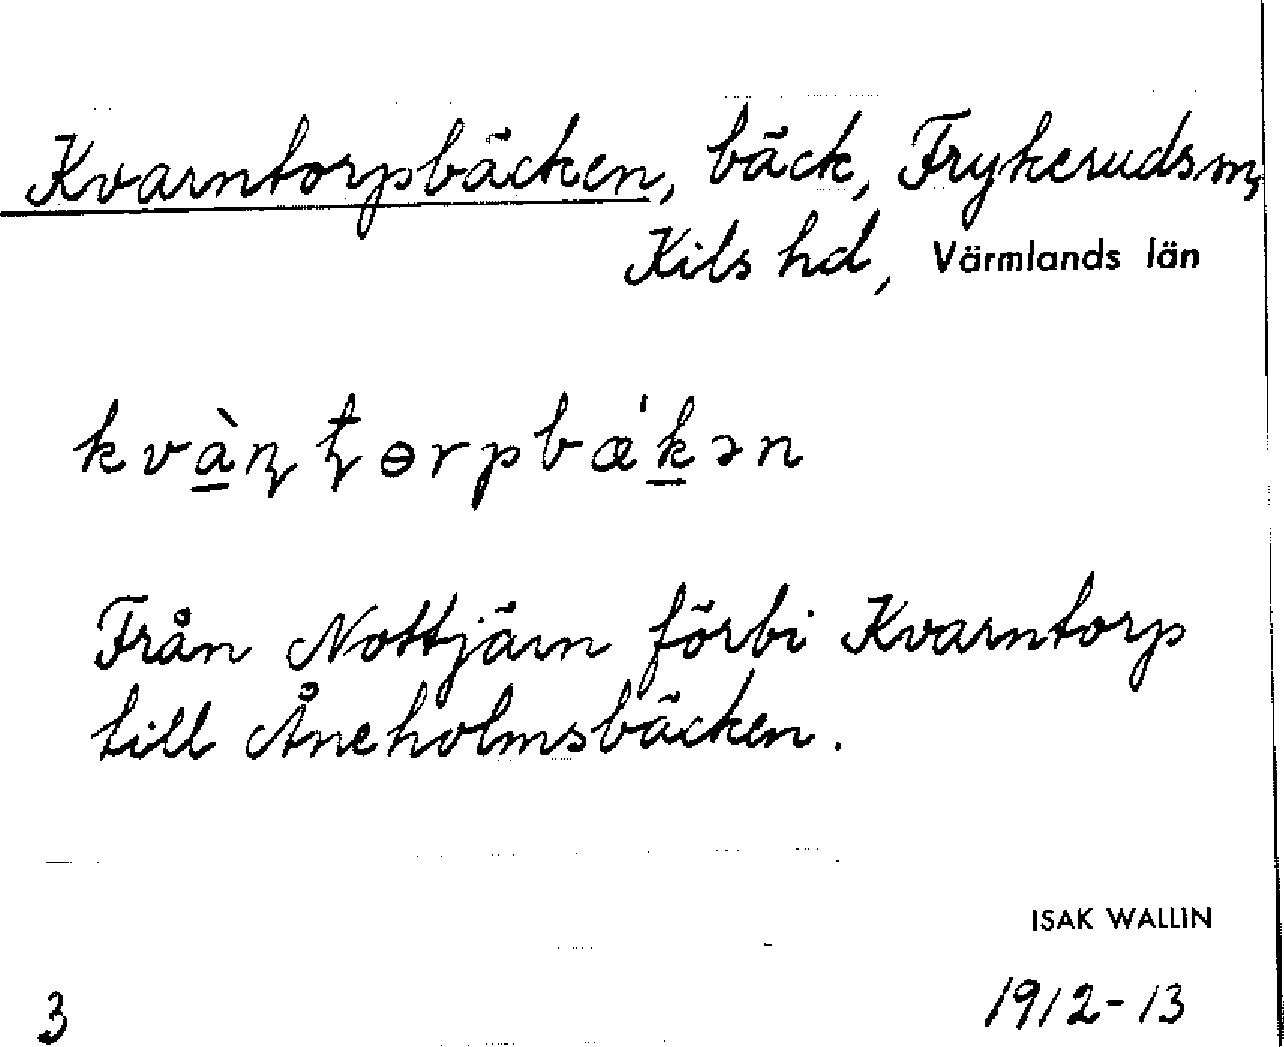 Kvarntorpbäcken, bäck, Frykeruds sn,
Kils hd, Värmlands län
kvà̠ɳʈɵrpbæ'k̠ən
Från Nottjärn förbi Kvarntorp
till Åneholmsbäcken.
ISAK WALLIN
3 1912-13